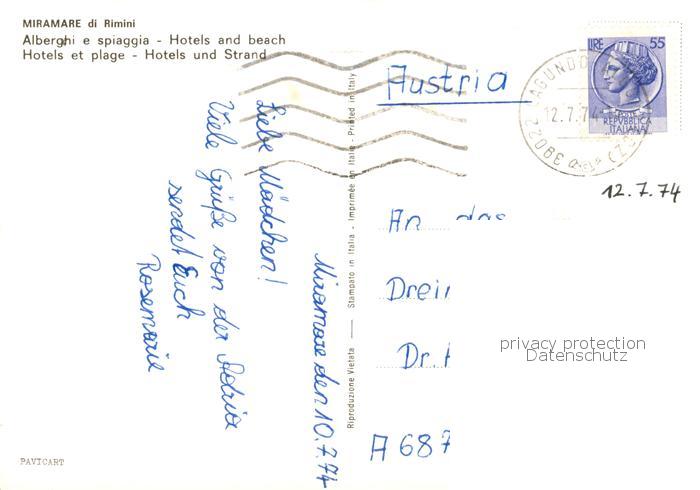 MIRAMARE di Rimini
Alberghi e spiaggia - Hotels and beach
Hotels et plage - Hotels und Strand
Miramare den 10.7.74
Liebe Mädchen!
Viele Grüße von der Adria
sendet Euch
Rosemarie
PAVICART
Riproduzione Vietata — Stampato in Italia - Imprimée en Italie - Printed in Italy
Austria
LIRE 55
REPVBBLICA
ITALIANA
LAGUNDO
12.7.74
39022
12.7.74
An das
Dr.
A 687
privacy protection
Datenschutz